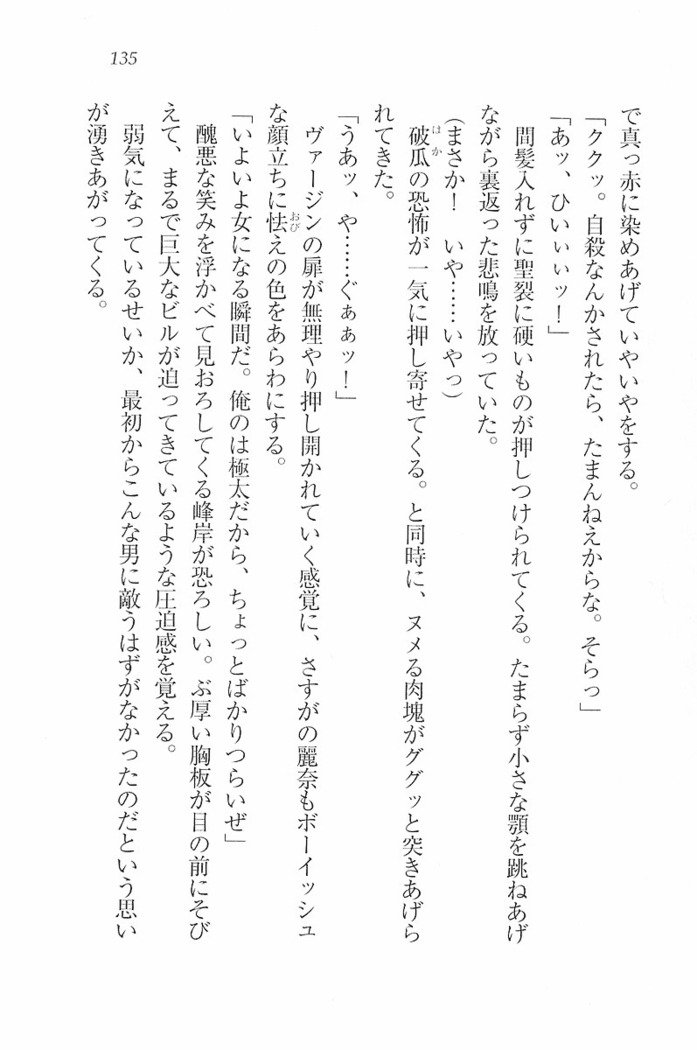 135
で真っ赤に染めあげていやいやをする。
「ククッ。自殺なんかされたら、たまんねえからな。そらっ」
「あッ、ひいぃぃッ！」
間髪入れずに聖裂に硬いものが押しつけられてくる。たまらず小さな顎を跳ねあげ
ながら裏返った悲鳴を放っていた。
（まさか！　いや……いやっ）
破瓜の恐怖が一気に押し寄せてくる。と同時に、ヌメる肉塊がググッと突きあげら
れてきた。
「うあッ、や……ぐぁぁッ！」
ヴァージンの扉が無理やり押し開かれていく感覚に、さすがの麗奈もボーイッシュ
な顔立ちに怯えの色をあらわにする。
「いよいよ女になる瞬間だ。俺のは極太だから、ちょっとばかりつらいぜ」
醜悪な笑みを浮かべて見おろしてくる峰岸が恐ろしい。ぶ厚い胸板が目の前にそび
えて、まるで巨大なビルが迫ってきているような圧迫感を覚える。
弱気になっているせいか、最初からこんな男に敵うはずがなかったのだという思い
が湧きあがってくる。